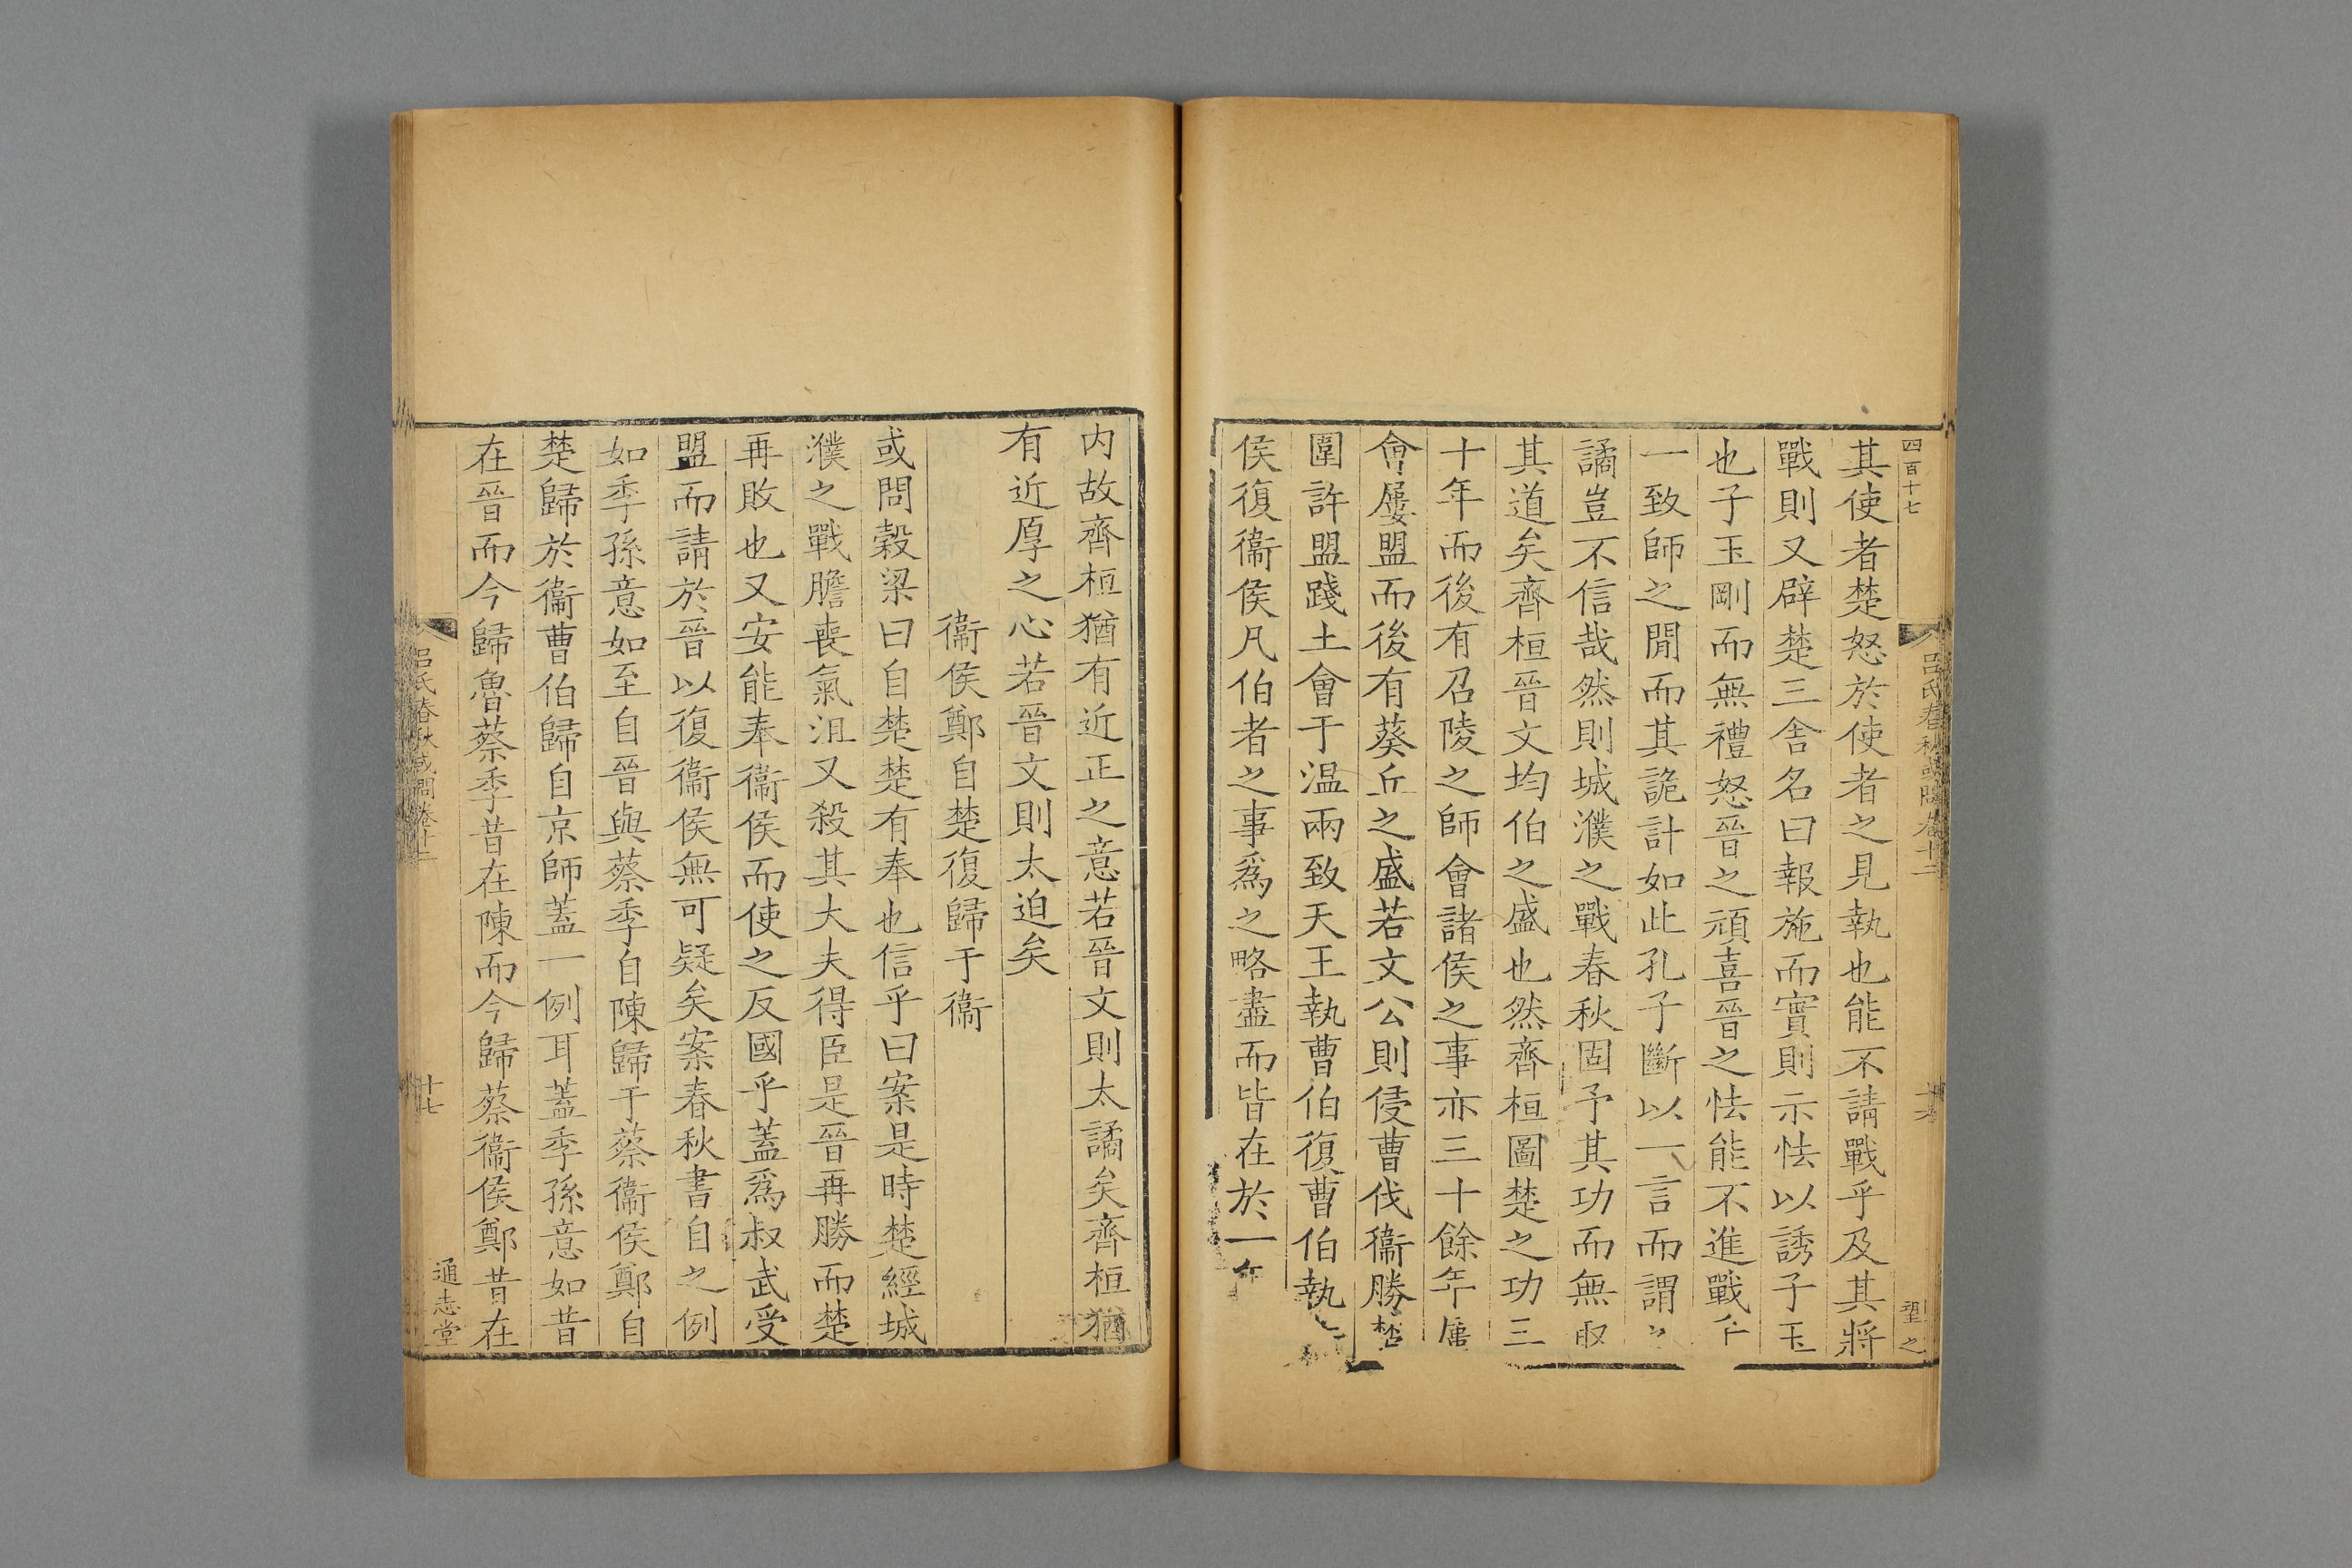 四百十七
呂氏春秋或問卷十二
望之
其使者楚怒於使者之見執也能不請戰乎及其將
戰則又辟楚三舍名曰報施而實則示怯以誘子玉
也子玉剛而無禮怒晉之頑喜晉之怯能不進戰乎
一致師之閒而其詭計如此孔子斷以一言而謂之
譎豈不信哉然則城濮之戰春秋固予其功而無取
其道矣齊桓晉文均伯之盛也然齊桓圖楚之功三
十年而後有召陵之師會諸侯之事亦三十餘年屢
會屢盟而後有葵丘之盛若文公則侵曹伐衞勝楚
圍許盟踐土會于温兩致天王執曹伯復曹伯執
侯復衞侯凡伯者之事爲之略盡而皆在於一年
内故齊桓猶有近正之意若晉文則太譎矣齊桓猶
有近厚之心若晉文則太迫矣
衞侯鄭自楚復歸于衞
或問榖梁曰自楚楚有奉也信乎曰案是時楚經城
濮之戰膽喪氣沮又殺其大夫得臣是晉再勝而楚
再敗也又安能奉衞侯而使之反國乎蓋爲叔武受
盟而請於晉以復衞侯無可疑矣案春秋書自之例
如季孫意如至自晉與蔡季自陳歸于蔡衞侯鄭自
楚歸於衞曹伯歸自京師蓋一例耳蓋季孫意如昔
在晉而今歸魯蔡季昔在陳而今歸蔡衞侯鄭昔在
呂氏春秋或問卷十二
十七
通志堂